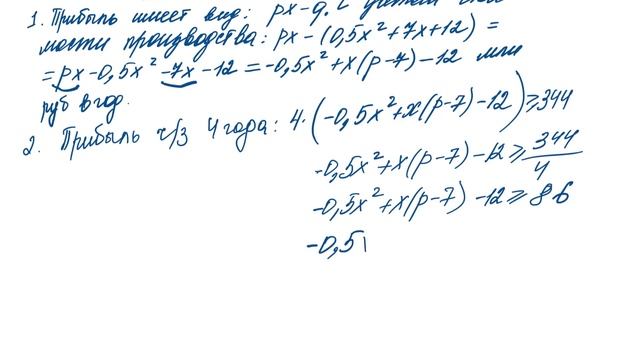 1. Прибыль имеет вид: px - q. С учетом стои
мости производства: px - (0,5x² + 7x + 12) =
= px - 0,5x² - 7x - 12 = -0,5x² + x(p - 7) - 12 млн
руб в год.
2. Прибыль ч/з 4 года: 4·(-0,5x² + x(p - 7) - 12) ≥ 344
-0,5x² + x(p - 7) - 12 ≥ 344/4
-0,5x² + x(p - 7) - 12 ≥ 86
-0,5